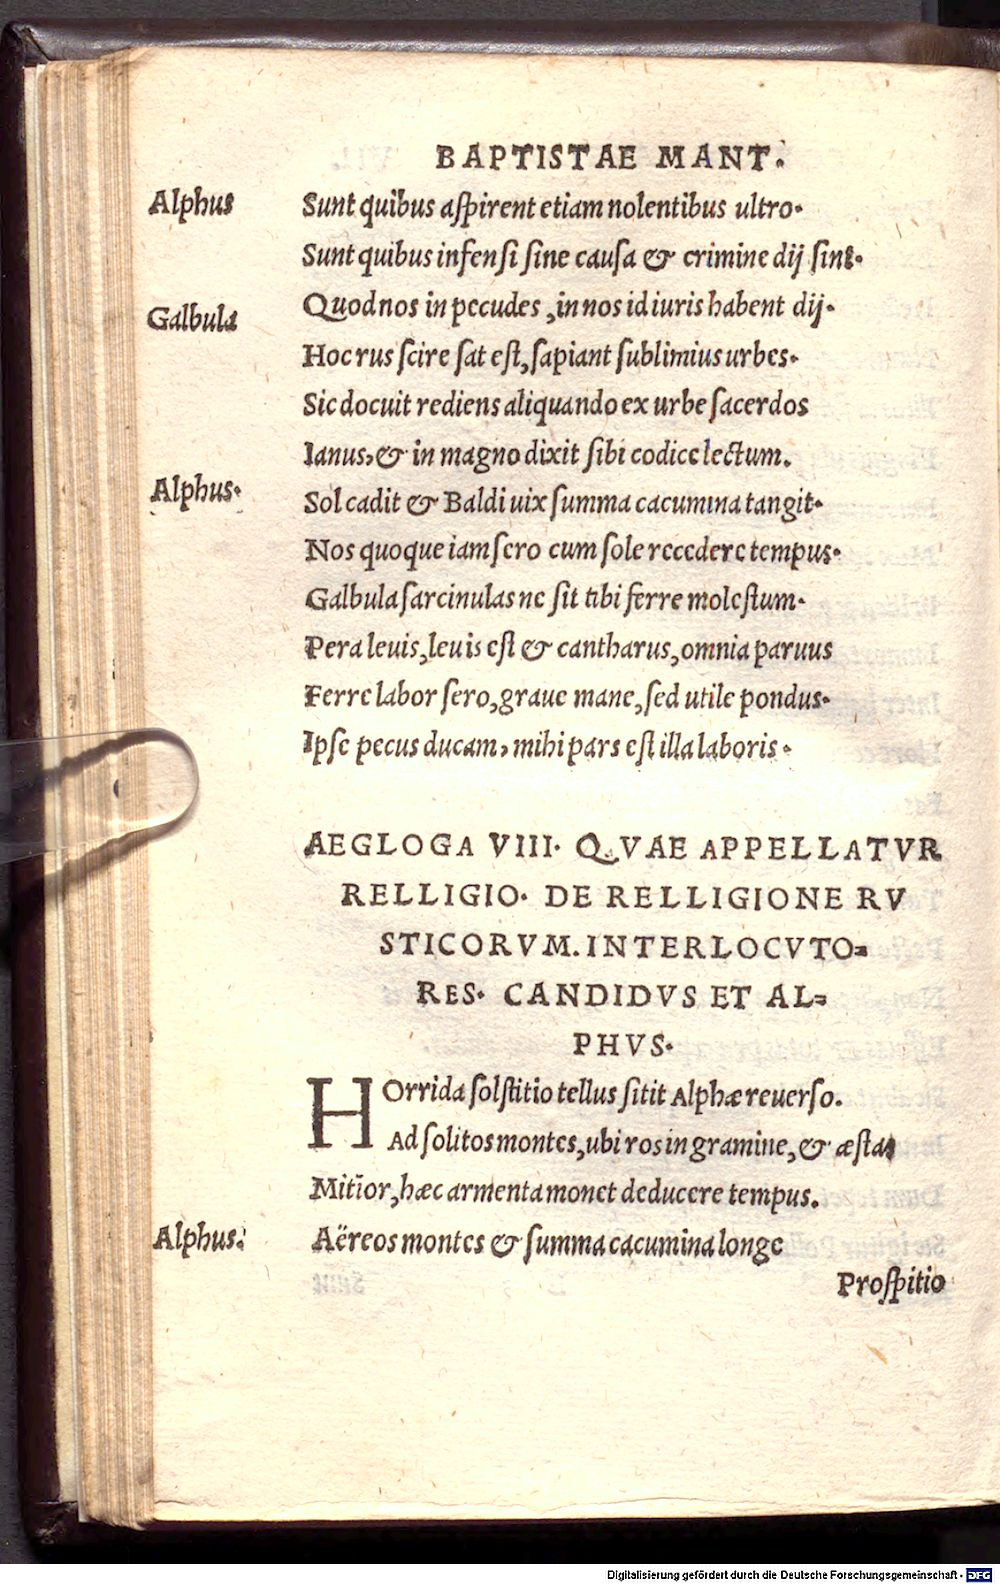 BAPTISTAE MANT.
Alphus Sunt quibus aspirent etiam nolentibus ultro.
Sunt quibus infensi sine causa & crimine dij sint.
Galbula Quod nos in pecudes, in nos id iuris habent dij.
Hoc rus scire sat est, sapiant sublimius urbes.
Sic docuit rediens aliquando ex urbe sacerdos
Ianus, & in magno dixit sibi codice lectum.
Alphus. Sol cadit & Baldi uix summa cacumina tangit.
Nos quoque iam sero cum sole recedere tempus.
Galbula sarcinulas ne sit tibi ferre molestum.
Pera leuis, leuis est & cantharus, omnia paruus
Ferre labor sero, graue mane, sed utile pondus.
Ipse pecus ducam, mihi pars est illa laboris.
AEGLOGA VIII. QVAE APPELLATVR
RELLIGIO. DE RELLIGIONE RV
STICORVM. INTERLOCVTO=
RES. CANDIDVS ET AL=
PHVS.
HOrrida solstitio tellus sitit Alphæ reuerso.
Ad solitos montes, ubi ros in gramine, & æstas
Mitior, hæc armenta monet deducere tempus.
Alphus. Aëreos montes & summa cacumina longe
Prospitio
Digitalisierung gefördert durch die Deutsche Forschungsgemeinschaft - DFG